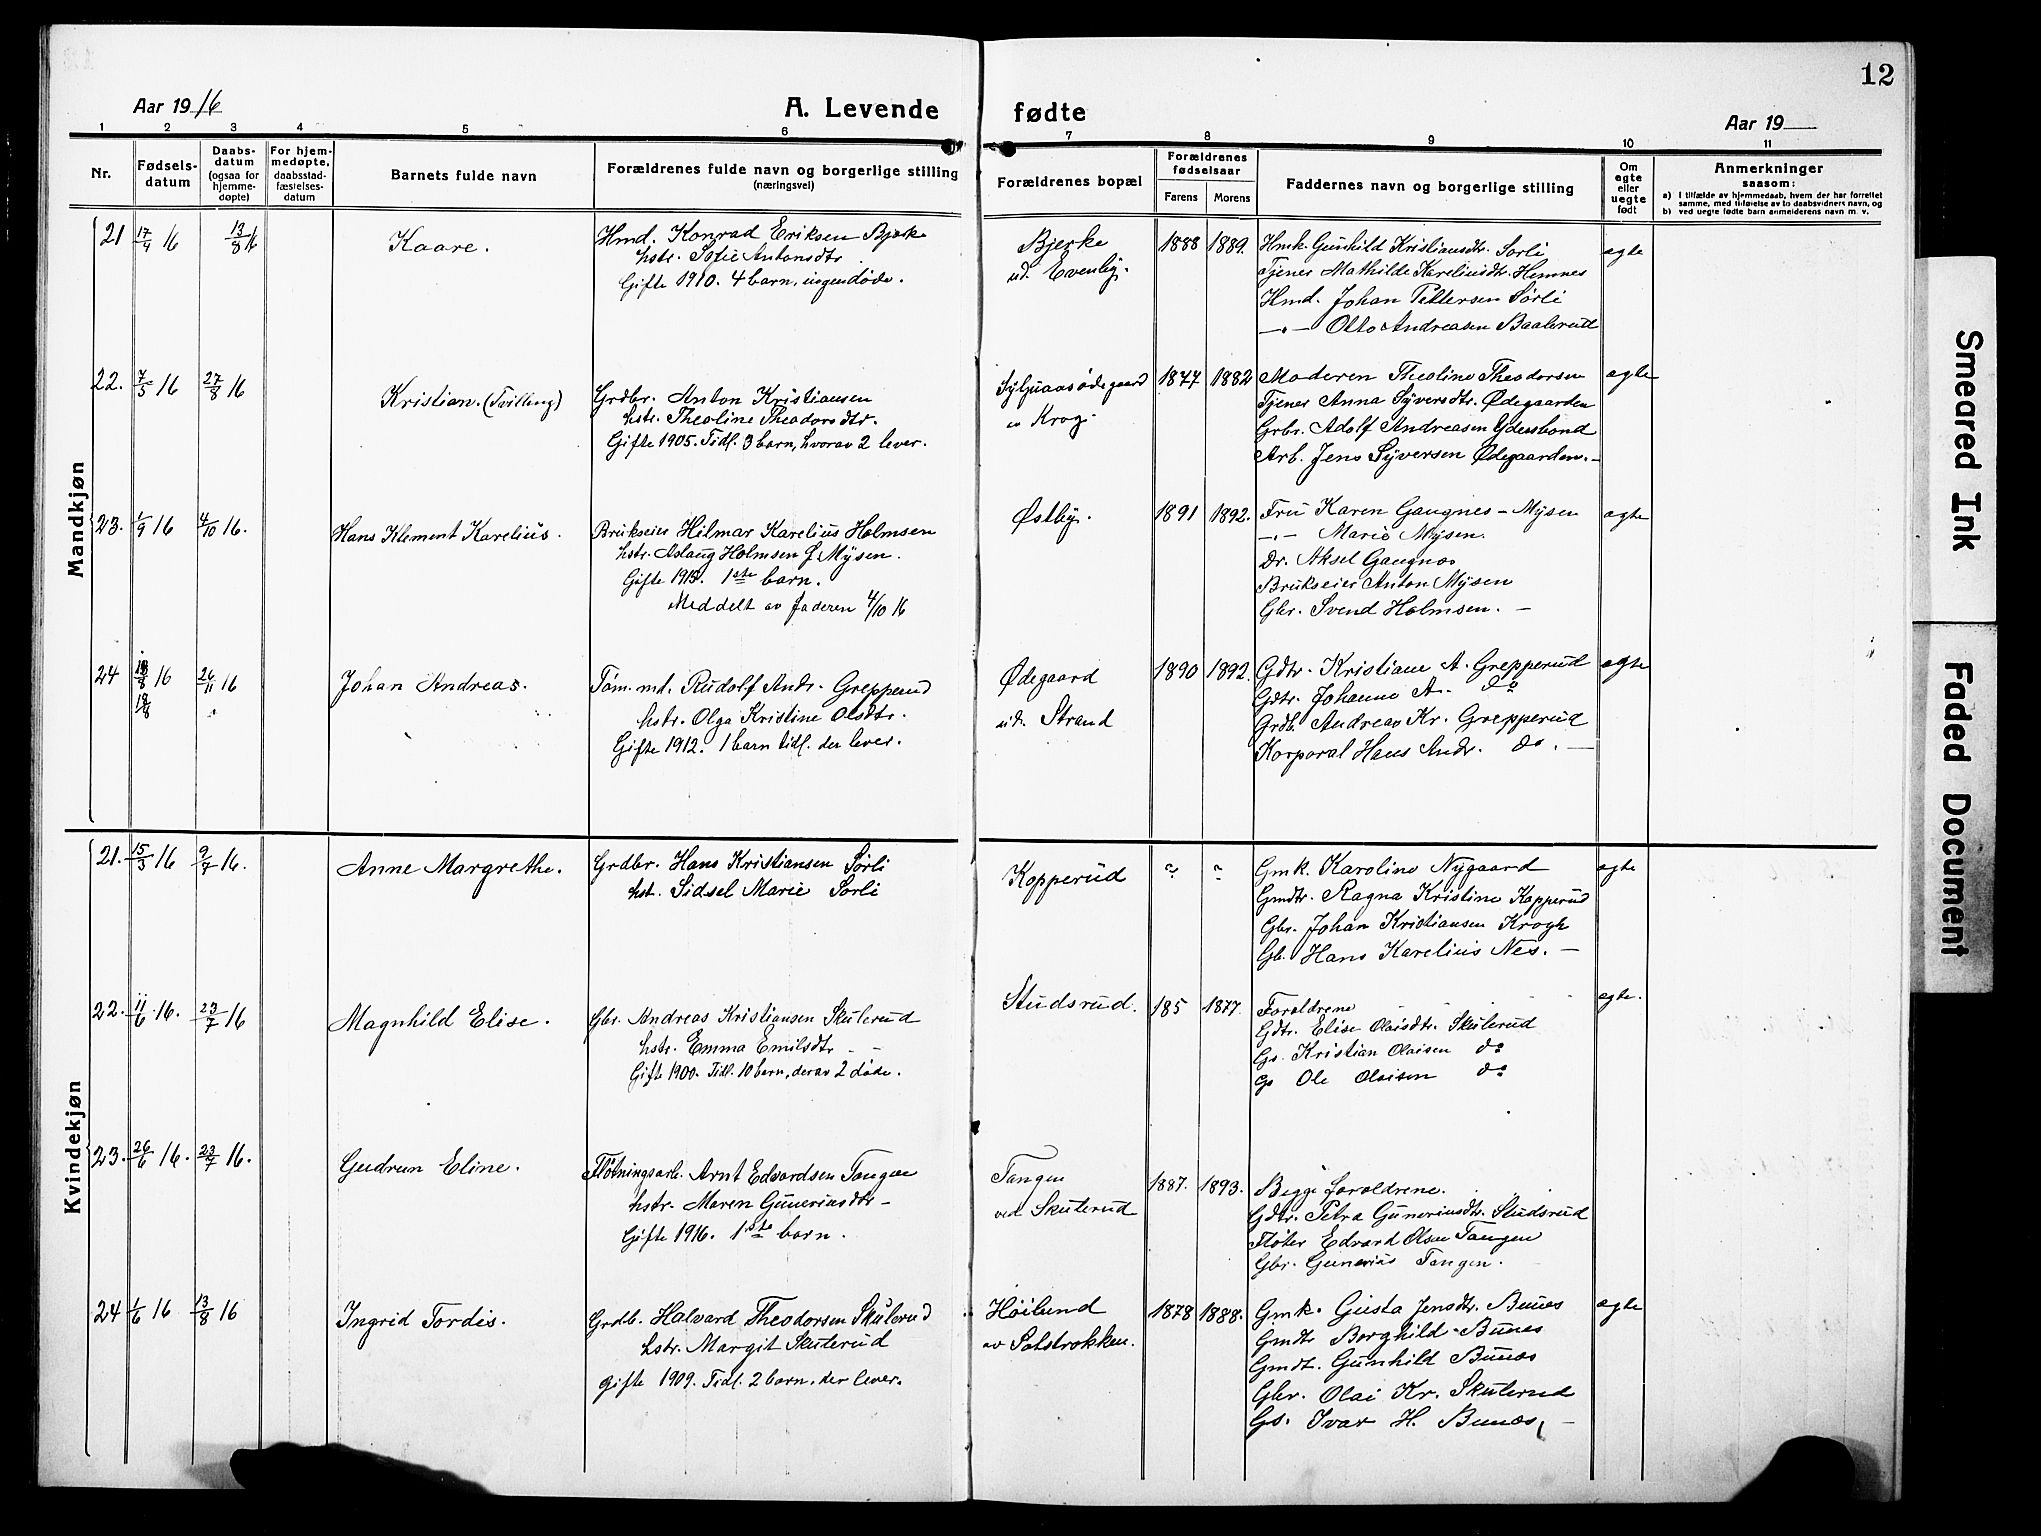 12
Aar 1916
A. Levende fødte
Aar 19
1 2 3 4 5 6 7 8 9 10 11
Nr.
Fødsels-
datum
Daabs-
datum
(ogsaa for
hjemme-
døpte)
For hjem-
medøpte,
daabsstad-
fæstelses-
datum
Barnets fulde navn
Forældrenes fulde navn og borgerlige stilling
(næringsvei)
Forældrenes bopæl
Forældrenes
fødselsaar
Farens Morens
Faddernes navn og borgerlige stilling
Om
egte
eller
uegte
født
Anmerkninger
saasom:
a) I tilfælde av hjemmedaab, hvem der har forrettet
samme, med tilføielse av to daabsvidners navn, og
b) ved uegte fødte barn anmelderens navn m. v.
Mandkjøn
21 17/4 16 13/8 16 Kaare.
Hmd. Konrad Eriksen Bjerke
hstr. Sofie Antonsdtr
Gifte 1910. 4 barn, ingen døde.
Bjerke
ud. Evenby.
1888 1889.
Hmk. Gunhild Kristiansdtr. Sorli
Tjener Mathilde Kareliusdtr. Hemnes
Hmd. Johan Pettersen Sørli
—„— Otto Andreasen Baalerud
egte
22. 7/5 16 27/8 16 Kristian. (Tvilling)
Grdbr. Anton Kristiansen
hstr. Theoline Theodorsdtr.
Gifte 1905. Tidl. 3 barn, hvorav 2 lever.
Krog.
1877 1882
Moderen Theoline Theodorsen
Tjener Anna Syversdtr. Ødegaarden
Grbr. Adolf Andreasen Ydersbond
Arb. Jens Syversen Ødegaarden. —
egte
23. 1/9 16 4/10 16. Hans Klement Karelius.
Brukseier Hilmar Karelius Holmsen
hstr. Aslaug Holmsen f. Mysen.
Gifte 1915. 1ste barn.
Meddelt av faderen 4/10 16
Østby.
1891 1892.
Fru Karen Gaugnes – Mysen
—„— Marie Mysen.
Dr. Aksel Gaugnæs
Brukseier Anton Mysen
Gbr. Svend Holmsen. —
egte
24 18/8 16 26/11 16 Johan Andreas.
19/8
Tøm.mt. Rudolf Andr. Grepperud
hstr. Olga Kristine Olsdtr.
Gifte 1912. 1 barn tidl. der lever.
Ødegaard
ud. Strand
1890 1892.
Gdtr. Kristiane A. Grepperud
Gdtr. Johanne A. do
Grdb. Andreas Kr. Grepperud
Korporal Hans Andr. do. —
egte
Kvindekjøn
21. 15/3 16 9/7 16. Anne Margrethe.
Grdbr. Hans Kristiansen Sørli
hst. Sidsel Marie Sorli
Kopperud
? ?
Gmk. Karoline Nygaard
Gmdtr. Ragna Kristine Kopperud
Gbr. Johan Kristiansen Krogh
Gb. Hans Karelius Nes. —
egte
22. 11/6 16. 23/7 16 Magnhild Elise.
Gbr. Andreas Kristiansen Skulerud
hstr. Emma Emilsdtr – –
Gifte 1900. Tidl. 10 barn, derav 2 døde.
Studsrud.
185 1877.
Foraldrene
Gdtr. Elise Olaisdtr. Skulerud
Gs. Kristian Olaisen do
Gs Ole Olaisen do
egte.
23. 26/6 16. 23/7 16. Gudrun Eline.
Fløtningsarb. Arnt Edvardsen Tangen
hstr. Maren Guneriusdtr –
Gifte 1916. 1ste barn.
Tangen
ved Skulerud
1887. 1893.
Begge foraldrene.
Gdtr. Petra Guneriusdtr. Studsrud
Fløter Edvard Olsen Tangen
Gbr. Gunerius Tangen.
24 1/6 16 13/8 16 Ingrid Tordis.
Grdb. Halvard Theodorsen Skulerud
hstr. Margit Skulerud
gifte 1909. Tidl. 2 barn, der lever.
Høilund
av Satstrokken.
1878 1888.
Gmk. Gusta Jensdtr. Bunes
Gmdtr Borghild Bunes
Gmdt. Gunhild Bunæs
Gbr. Olai Kr. Skulerud
Gs. Ivar H. Bunæs, —
egte
Smeared Ink
Faded Document